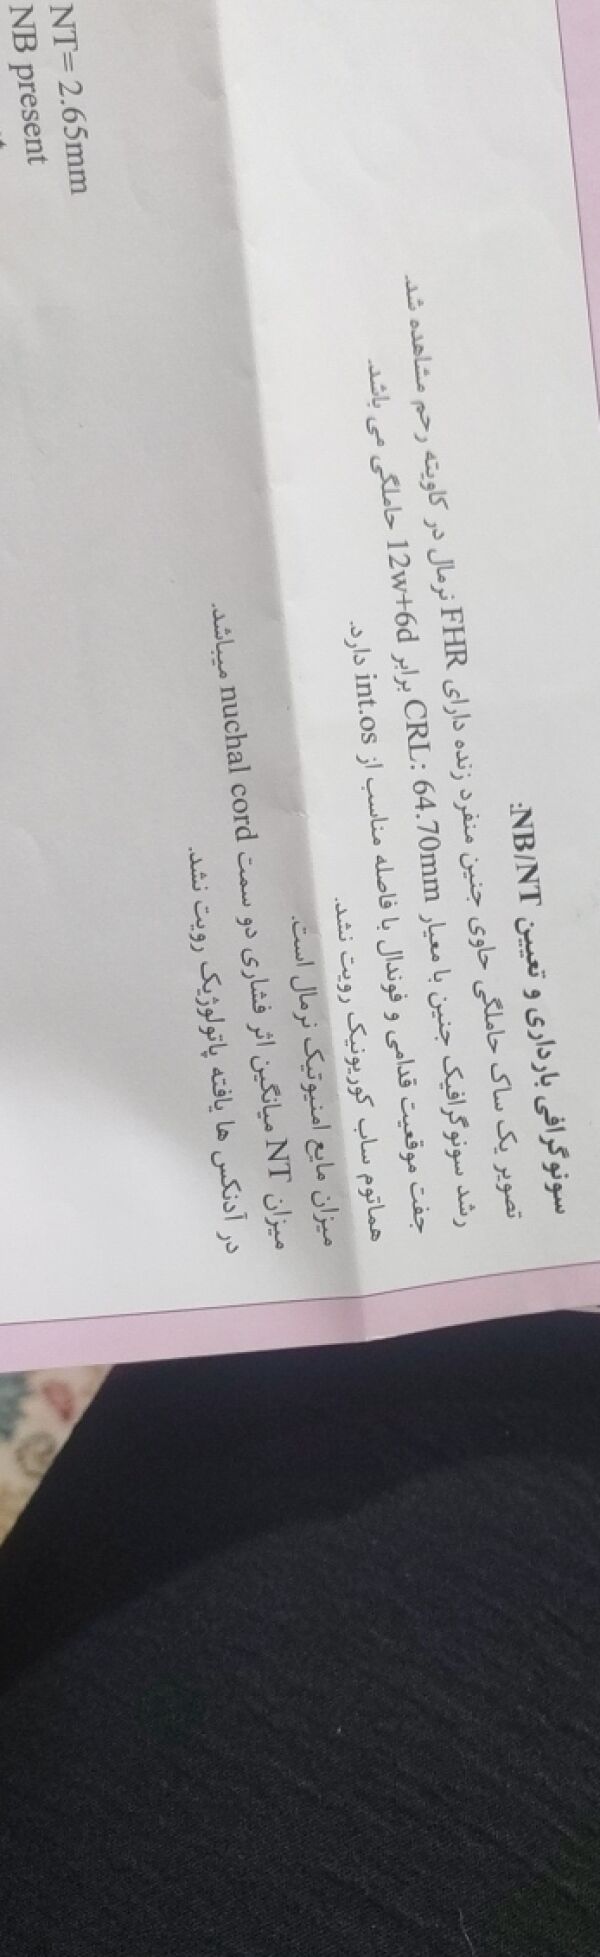 سونوگرافی بارداری و تعیین NB/NT:
تصویر یک ساک حاملگی حاوی جنین منفرد زنده دارای FHR نرمال در کاویته رحم مشاهده شد.
رشد سونوگرافیک جنین با معیار CRL: 64.70mm برابر 12w+6d حاملگی می باشد.
جفت موقعیت قدامی و فوندال با فاصله مناسب از int.os دارد.
هماتوم ساب کوریونیک رویت نشد.
میزان مایع امنیوتیک نرمال است.
میزان NT میانگین اثر فشاری دو سمت nuchal cord میباشد.
در آدنکس ها یافته پاتولوژیک رویت نشد.
NT= 2.65mm
NB present